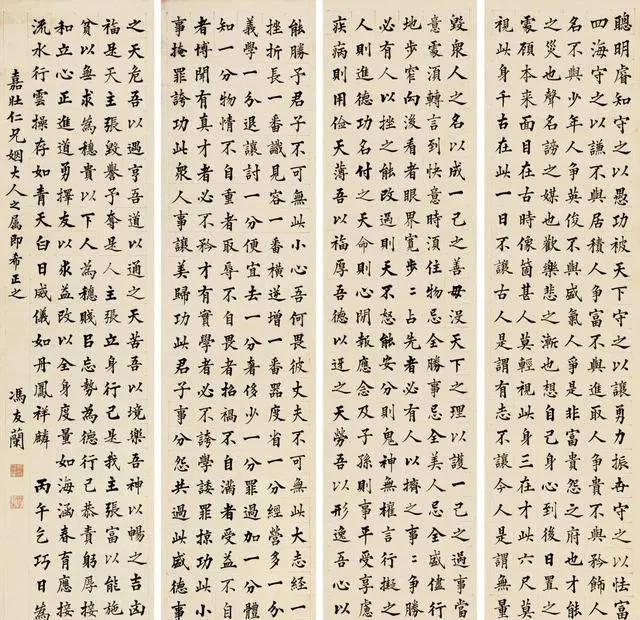 聰明睿知守之以愚功被天下守之以讓勇力振吾守之以怯富
四海守之以謙不與居積人爭富不與進取人爭貴不與矜飾人
名不與少年人爭英俊不與盛氣人爭是非富貴怨之府也才能
之災也聲名謗之媒也歡樂悲之漸也想自己身心到後日置之
處顧本來面目在古時像箇甚人莫輕視此身三在才此六尺莫
視此身千古在此一日不讓古人是謂有志不讓今人是謂無量
毀衆人之名以成一己之善毋沒天下之理以護一己之過事當
意處須轉言到快意時須住物忌全勝事忌全美人忌全盛儘行
地步窄向後看者眼界寬步二占先者必有人以擠之事二爭勝
必有人以挫之能改過則天不怒能安分則鬼神無權言行擬之
人則進德功名付之天命則心閒報應念及子孫則事平受享慮
疾病則用儉天薄吾以福厚吾德以迓之天勞吾以形逸吾心以
能勝予君子不可無此小心吾何畏彼丈夫不可無此大志經一
挫折長一番識見容一番橫逆增一番器度省一分經營多一分
義學一分退讓討一分便宜去一分奢侈少一分罪過加一分體
知一分物情不自重者取辱不自畏者招禍不自滿者受益不自
者博聞有真才者必不矜才有實學者必不誇學諉罪掠功此小
事掩罪誇功此衆人事讓美歸功此君子事分怨共過此盛德事
之天危吾以遇亨吾道以通之天苦吾以境樂吾神以暢之吉凶
福是天主張毀譽予奪是人主張立身行己是我主張富以能施
貧以無求為穩貴以下人為穩賤㠯忘勢為德行己恭責躬厚接
和立心正進道勇擇友以求益改以全身度量如海涵春育應接
流水行雲操存如青天白日威儀如丹鳳祥麟 丙午乞巧日為
嘉壯仁兄姻大人之屬即希正之 馮友蘭